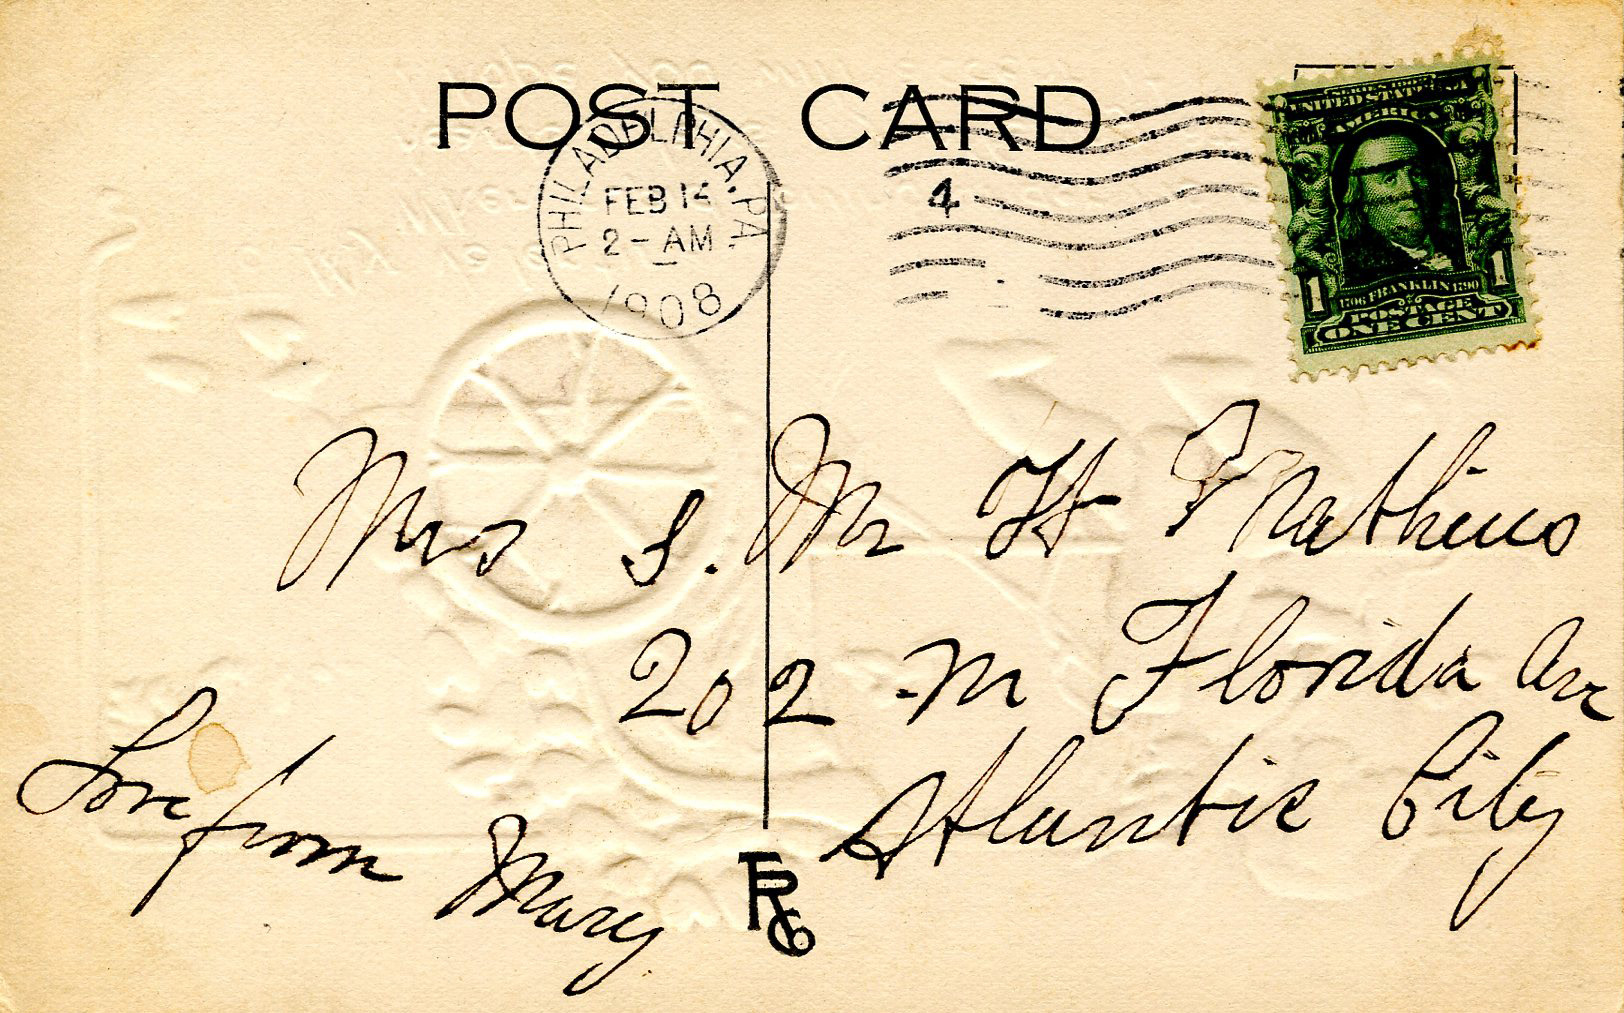 POST CARD
PHILADELPHIA, PA.
FEB 14
2 - AM
1908
4
UNITED STATES OF
AMERICA
1706 FRANKLIN 1790
1 1
POSTAGE
ONE CENT
Mrs S. M H Mathews
202 - N Florida Ave
Atlantic City
Love from Mary